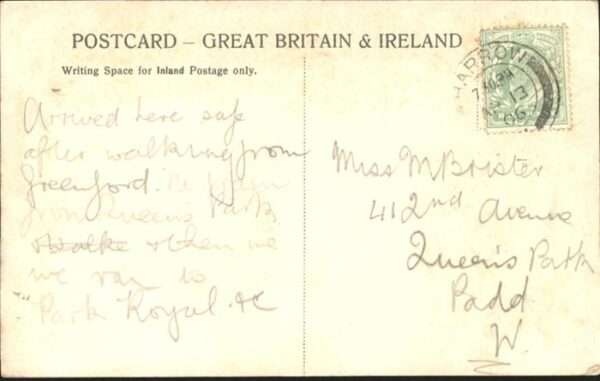 POSTCARD – GREAT BRITAIN & IRELAND
Writing Space for Inland Postage only.
HARROW
13
06
Arrived here safe
after walking from
Greenford. We
from Queens Park
Walke & then we
we ran to
Park Royal. &c
Miss M Brister
41 2nd Avenue
Queen's Park
Padd
W.